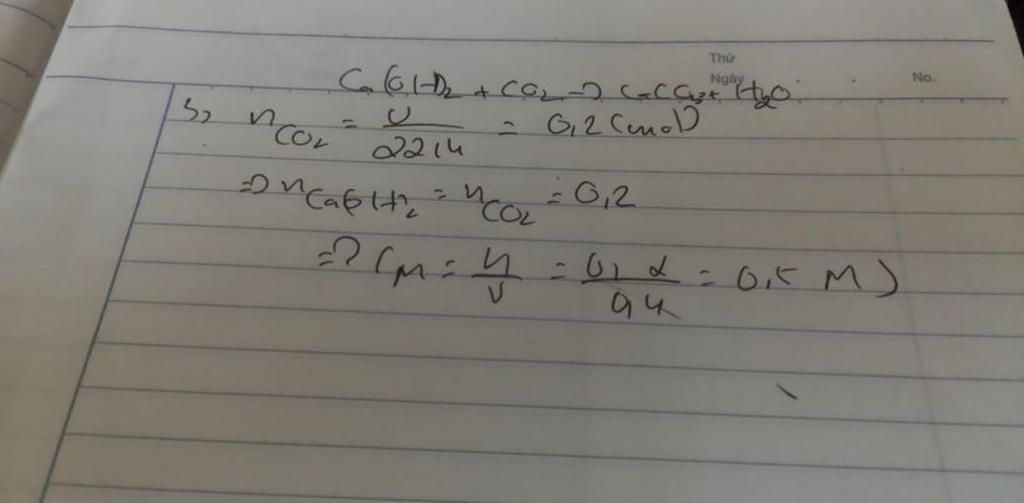 Thứ
Ngày No.
Ca(OH)2 + CO2 → CaCO3 + H2O
5, nCO2 = V/22,4 = 0,2 (mol)
=> nCa(OH)2 = nCO2 = 0,2
=> CM = n/V = 0,2/0,4 = 0,5 M)